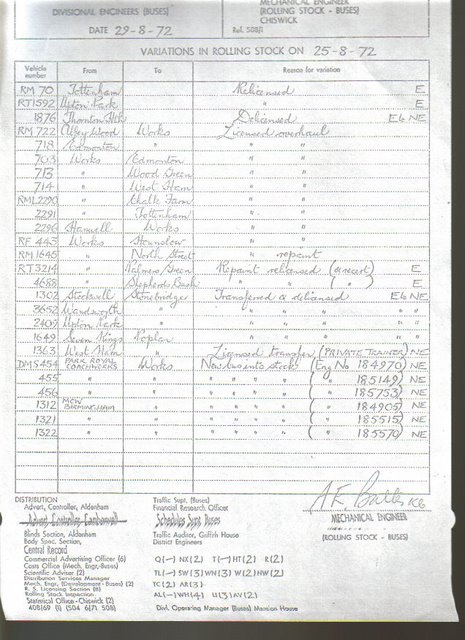 DIVISIONAL ENGINEERS (BUSES)
MECHANICAL ENGINEER
(ROLLING STOCK - BUSES)
CHISWICK
DATE 29-8-72
Ref. 508/1
VARIATIONS IN ROLLING STOCK ON 25-8-72
Vehicle number From To Reason for variation
RM 70 Tottenham Relicensed E
RT1592 Upton Park " E
1876 Thornton Hth Delicensed E to NE
RM 722 Abbey Wood Works Licensed overhaul
718 Edmonton " " "
703 Works Edmonton " "
713 " Wood Green " "
714 " West Ham " "
RML2290 " Chalk Farm " "
2291 " Tottenham " "
2296 Hanwell Works " "
RF 443 Works Hounslow " "
RM 1645 " North Street " repaint
RT3214 " Palmers Green Repaint relicensed (a recert) E
4688 " Shepherds Bush " " ( " ) E
1302 Stockwell Stonebridge Transferred & delicensed E to NE
3652 Wandsworth " " " " "
2409 Upton Park " " " " "
1649 Seven Kings Poplar " " " "
1363 West Ham " Licensed transfer (PRIVATE TRAINER) NE
DMS454 PARK ROYAL COACHWORKS Works New buses into stock (Eng No 184970) NE
455 " " " " " ( " 185149) NE
456 " " " " " ( " 185753) NE
1312 MCW BIRMINGHAM " " " " ( " 184905) NE
1321 " " " " " ( " 185515) NE
1322 " " " " " ( " 185579) NE
MECHANICAL ENGINEER
(ROLLING STOCK - BUSES)
DISTRIBUTION
Advert. Controller, Aldenham
Advert. Controller Camberwell
Blinds Section, Aldenham
Body Insp. Section,
Central Record
Commercial Advertising Officer (6)
Costs Office (Mech. Engr.-Buses)
Scientific Adviser (2)
Distribution Services Manager
Mech. Engr. (Development - Buses) (2)
R. S. Licensing Section (8)
Rolling Stock Inspection
Statistical Office - Chiswick (2)
Traffic Supt. (Buses)
Financial Research Officer
Schedules Supt Buses
Traffic Auditor, Griffith House
District Engineers
Q(—) NX(2) T(—) HT(2) R(2)
TL(—) SW(3) WN(3) W(2) NW(2)
TC(2) AR(3)
AL(—) WH(4) U(3) AV(2)
Divl. Operating Manager (Buses) Mansion House